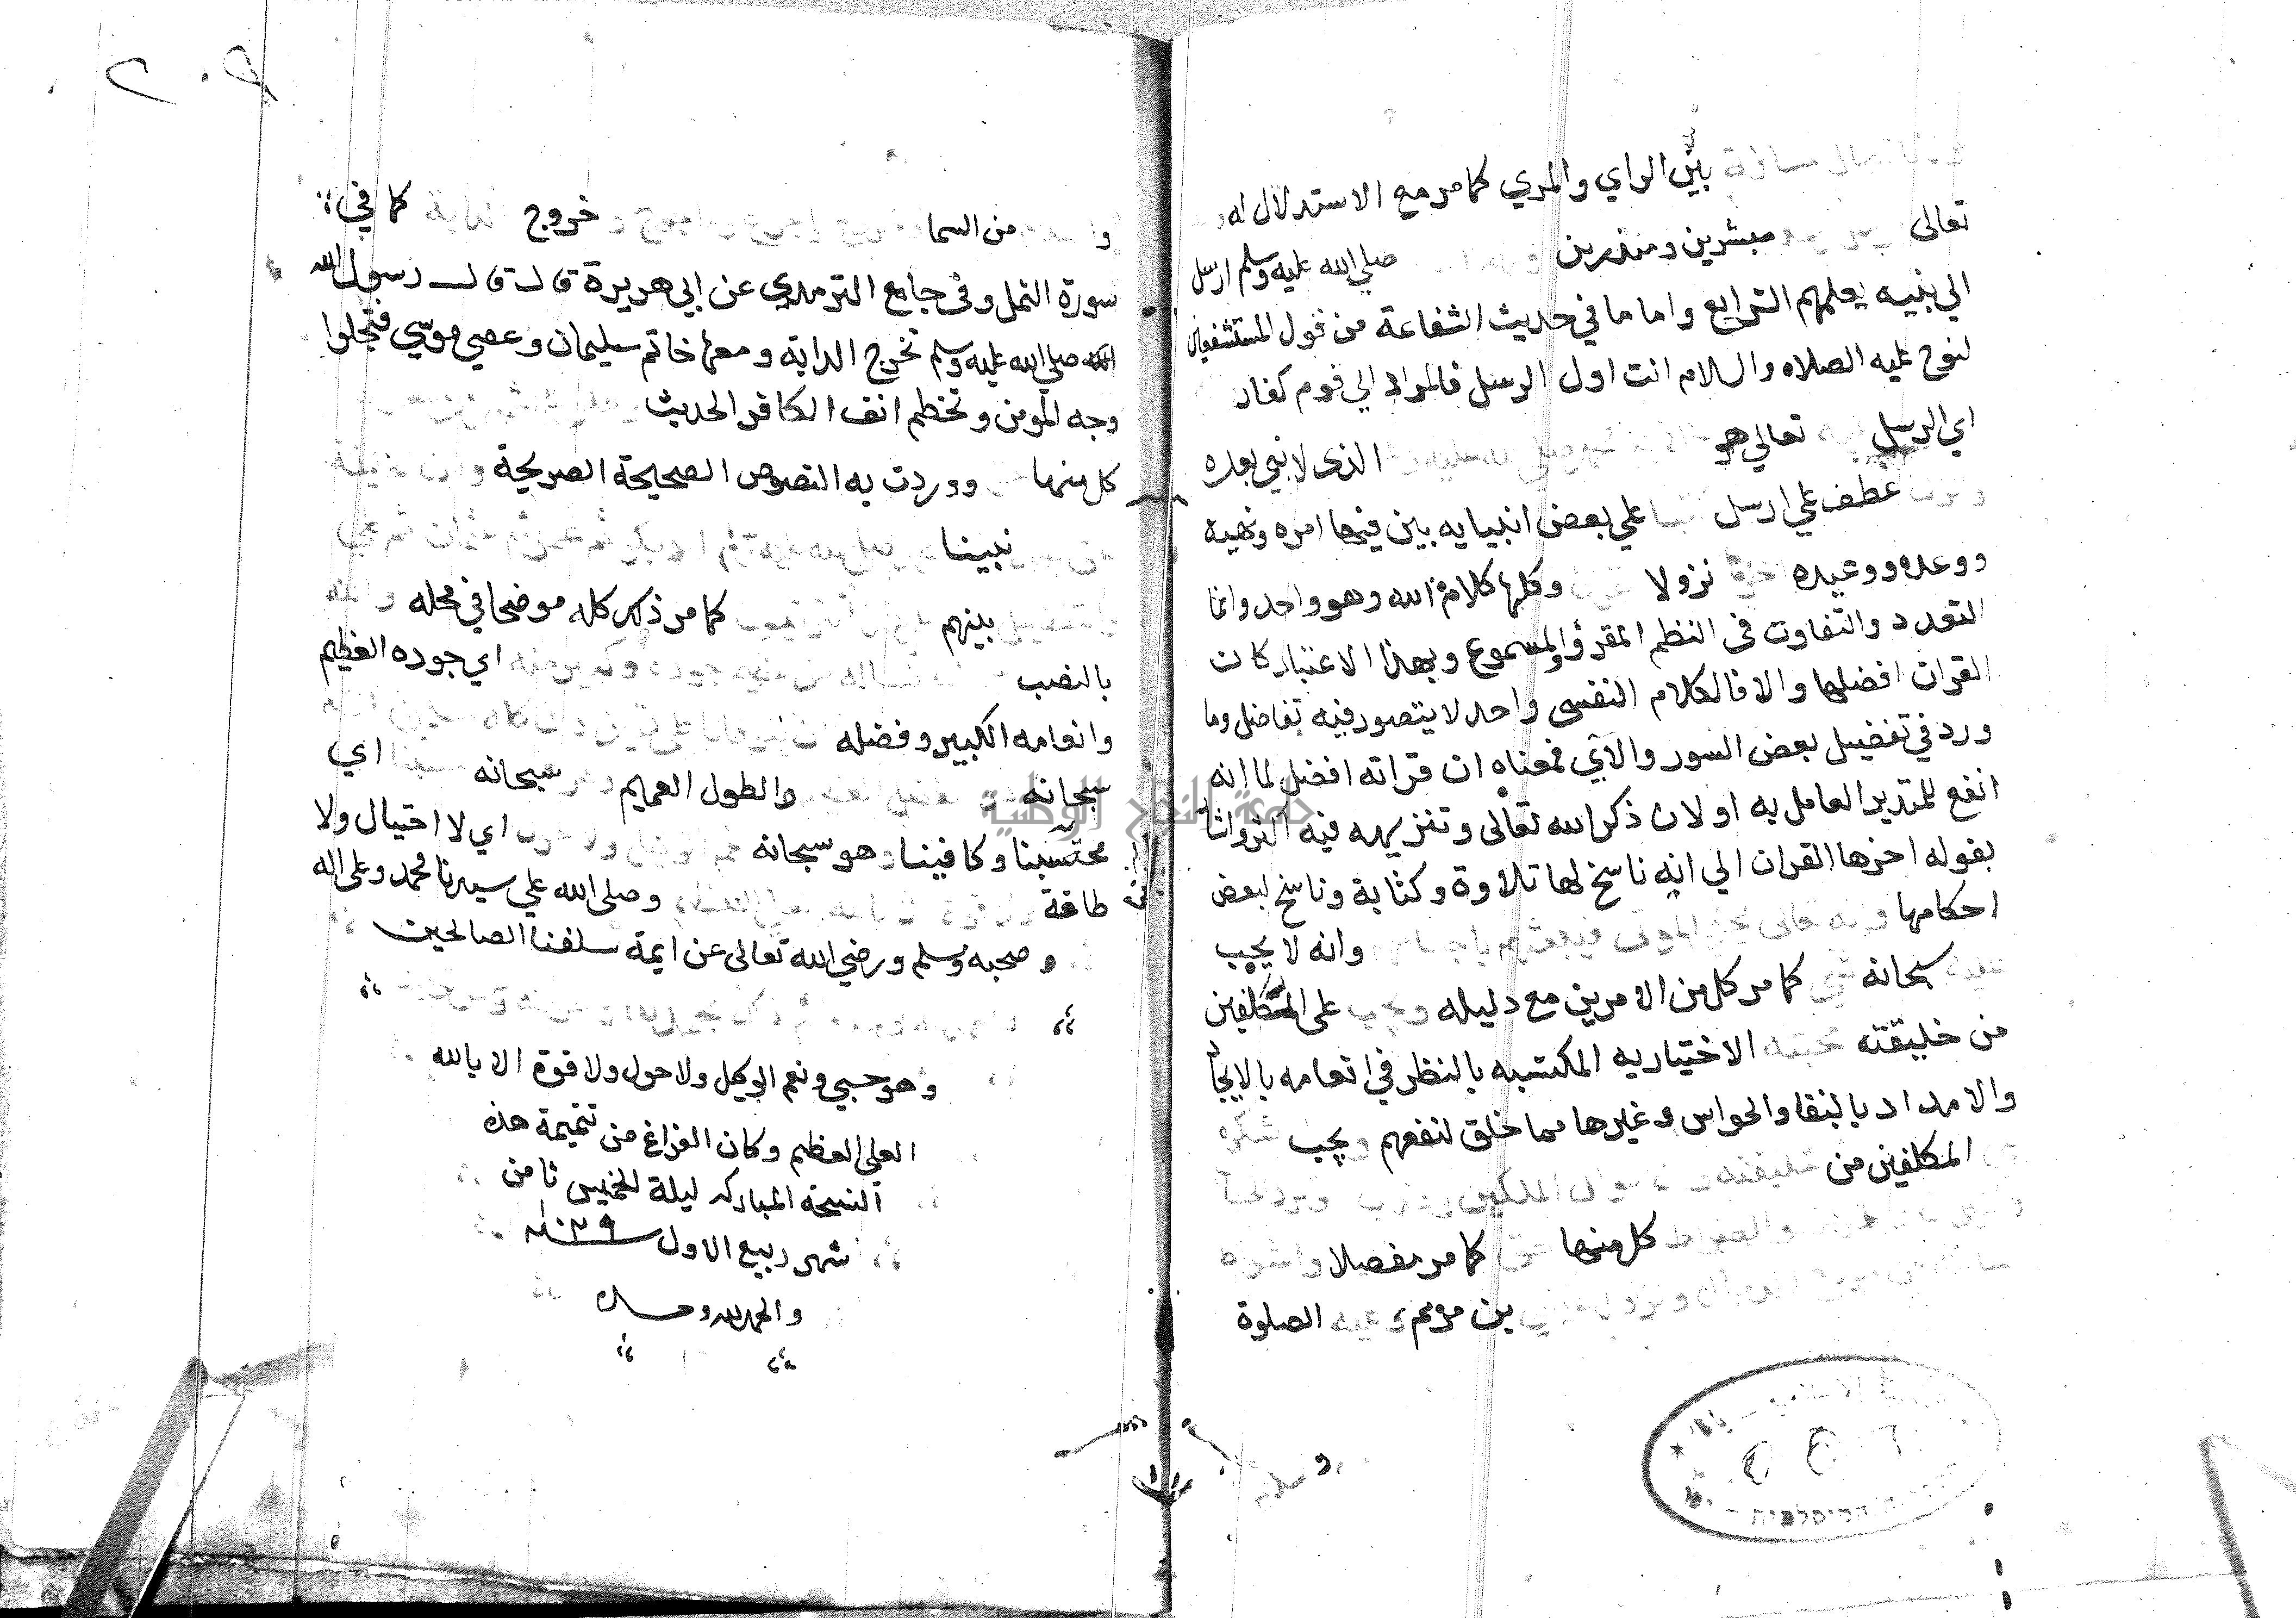 بين الراي والمري كما مر مع الاستدلال له
تعالى مبشرين ومنذرين صلي الله عليه وسلم ارسل
الي بنيه يعلمهم الشرايع واما ما في حديث الشفاعة من قول المستشفعين
لنوح عليه الصلاه والسلام انت اول الرسل فالمراد الي قوم كفار
اي الرسل تعالي هو الذي لا نبي بعده
عطف علي ارسل علي بعض انبيايه بين فيها امره ونهيه
ووعده ووعيده نزولا وكلها كلام الله وهو واحد وانما
التعدد والتفاوت في النظم المقرؤ والمسموع وبهذا الاعتبار كان
القران افضلها والا فالكلام النفسي واحد لا يتصور فيه تفاضل وما
ورد في تفضيل بعض السور والآي فمعناه ان قراته افضل لما انه
انفع للمتدبر العامل به او لان ذكر الله تعالى وتنزيهه فيه اكثر واشا
بقوله اخرها القران الي انه ناسخ لها تلاوة وكتابة وناسخ لبعض
احكامها وانه لا يجب
سبحانه كما مر كل من الامرين مع دليله على المكلفين
من خليقته الاختياريه المكتسبه بالنظر في انعامه بالايجاد
والامداد بالبقا والحواس وغيرها مما خلق لنفعهم يجب
المكلفين من
كل منها كما مر مفصلا
بن مريم الصلوة
من السما خروج كما في
سورة النمل وفي جامع الترمذي عن ابي هريرة قال قال رسول الله
صلي الله عليه وسلم تخرج الدابة ومعها خاتم سليمان وعصي موسي فتجلوا
وجه المومن وتخطم انف الكافر الحديث
كل منها ووردت به النصوص الصحيحة الصريحة
نبينا
بينهم كما مر ذلك كله موضحا في محله
بالنصب اي جوده العظيم
وانعامه الكبير وفضله
سبحانه والطول العميم سبحانه اي
محتسبنا وكافينا وهو سبحانه اي لا احتيال ولا
طاقة وصلى الله علي سيدنا محمد وعلى اله
وصحبه وسلم ورضي الله تعالى عن ايمة سلفنا الصالحين
وهو حسبي ونعم الوكيل ولا حول ولا قوة الا بالله
العلي العظيم وكان الفراغ من تتميمة هذه
النسخة المباركه ليلة الخميس ثامن
شهر ربيع الاول سنة ١٠٣٩
والحمد لله وحده
جامعة النجاح الوطنية